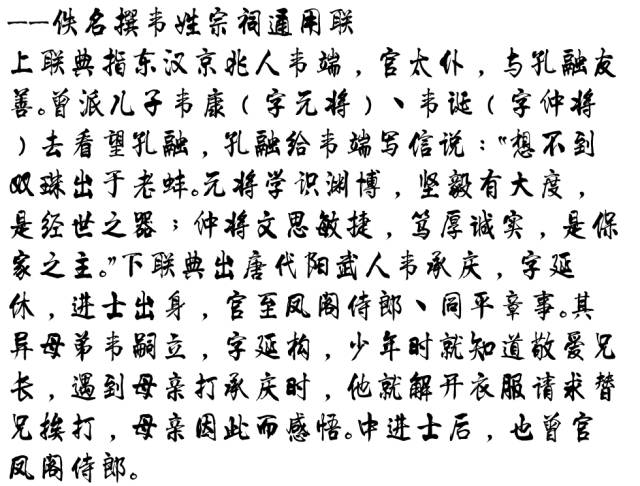 ——佚名撰韦姓宗祠通用联
上联典指东汉京兆人韦端，官太仆，与孔融友
善。曾派儿子韦康（字元将）、韦诞（字仲将
）去看望孔融，孔融给韦端写信说：“想不到
双珠出于老蚌。元将学识渊博，坚毅有大度，
是经世之器；仲将文思敏捷，笃厚诚实，是保
家之主。”下联典出唐代阳武人韦承庆，字延
休，进士出身，官至凤阁侍郎、同平章事。其
异母弟韦嗣立，字延构，少年时就知道敬爱兄
长，遇到母亲打承庆时，他就解开衣服请求替
兄挨打，母亲因此而感悟。中进士后，也曾官
凤阁侍郎。